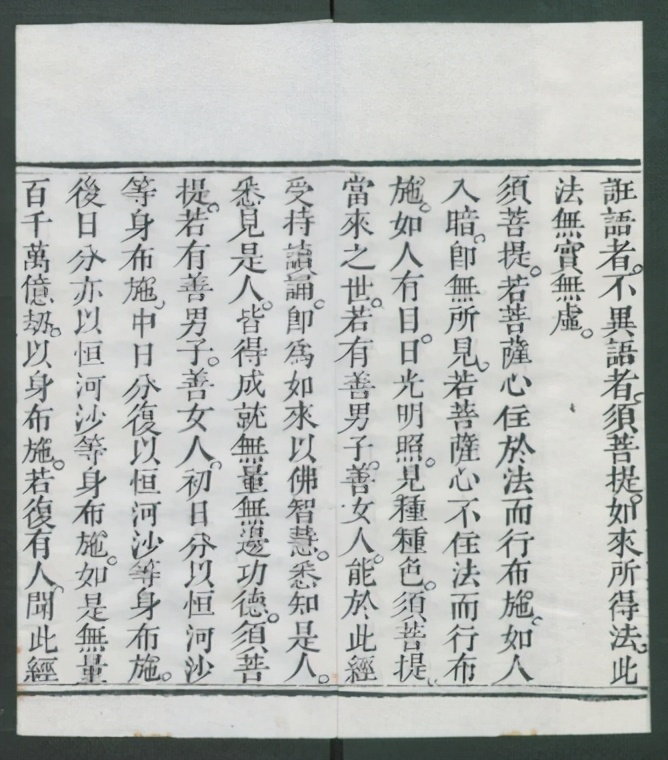 誑語者。不異語者。須菩提。如來所得法。此
法無實無虛。
須菩提。若菩薩心住於法而行布施。如人
入暗。卽無所見。若菩薩心不住法而行布
施。如人有目。日光明照。見種種色。須菩提。
當來之世。若有善男子。善女人。能於此經
受持讀誦。卽爲如來以佛智慧。悉知是人。
悉見是人。皆得成就無量無邊功德。須菩
提。若有善男子。善女人。初日分以恒河沙
等身布施。中日分復以恒河沙等身布施。
後日分亦以恒河沙等身布施。如是無量
百千萬億劫。以身布施。若復有人。聞此經